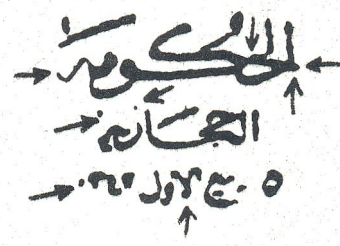 الحكومة
الحجازية
٥ ربيع الاول